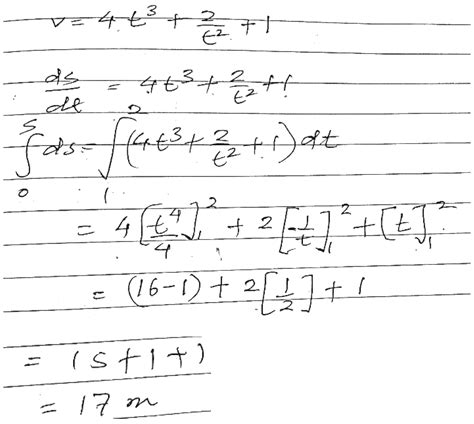 v = 4t³ + 2/t² + 1
ds/dt = 4t³ + 2/t² + 1
∫₀ˢ ds = ∫₁² (4t³ + 2/t² + 1) dt
= 4[t⁴/4]₁² + 2[-1/t]₁² + [t]₁²
= (16-1) + 2[1/2] + 1
= 15+1+1
= 17 m